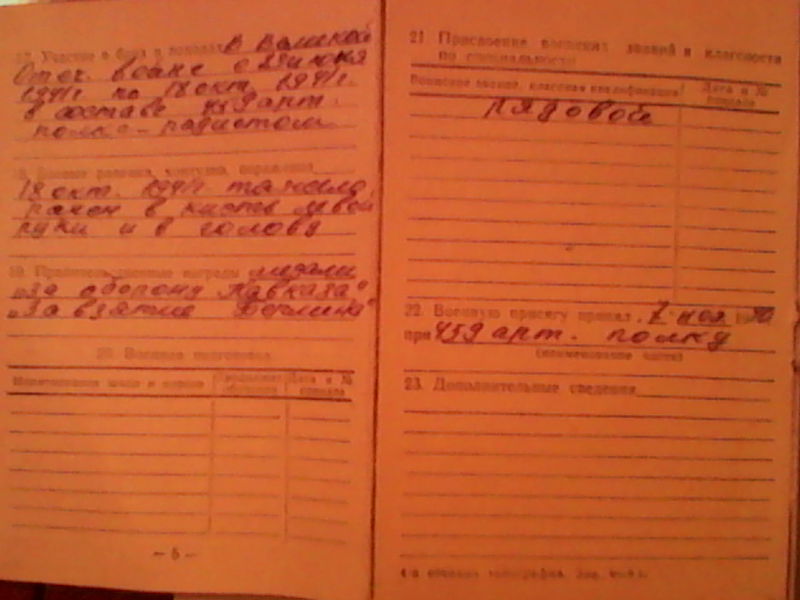 17. Участие в боях и походах в Великой
Отеч. войне с июня
1941г. по 18 окт. 1941г.
в составе 459 арт.
полка – радистом
18. Боевые ранения, контузии, поражения
18 окт. 1941г. тяжело
ранен в кисть левой
руки и в голову
19. Правительственные награды медали
„За оборону Кавказа"
„За взятие Берлина"
20. Военная подготовка
Дата и №
приказа
— 5 —
21. Присвоение воинских званий и классности
по специальности
Воинское звание, классная квалификация
Дата и №
приказа
рядовой
22. Военную присягу принял „7" ноя 19
при 459 арт. полку
(наименование части)
23. Дополнительные сведения
типография. Зак.